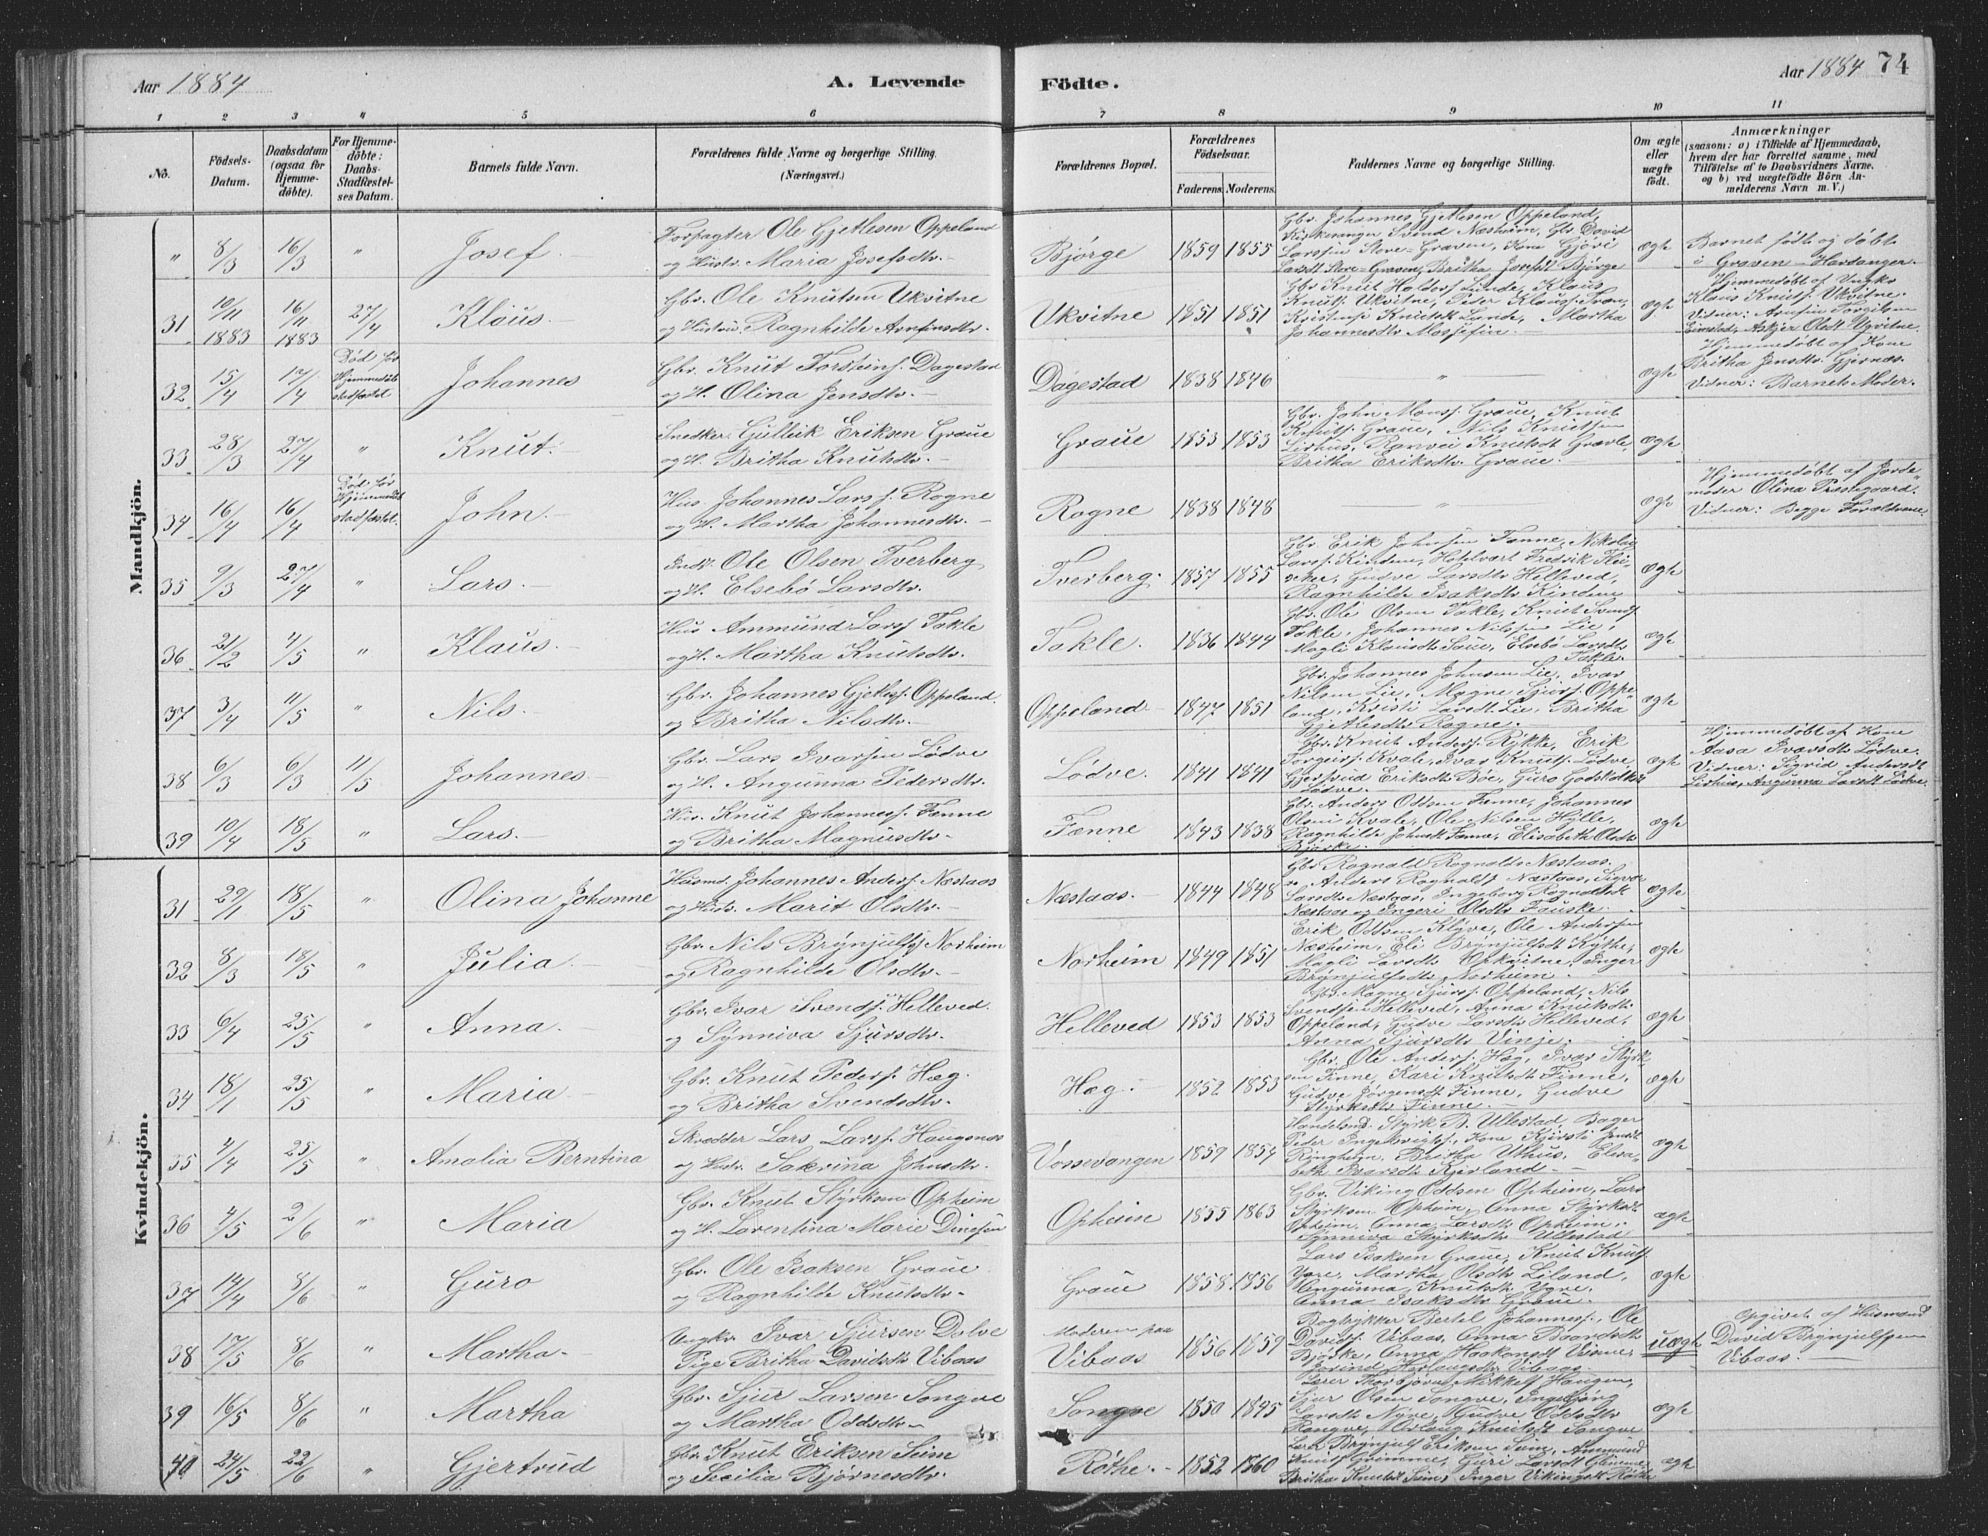 Aar 1884
A. Levende
Födte.
Aar 1884 74
1 2 3 4 5 6 7 8 9 10 11
No.
Födsels-
Datum.
Daabsdatum
(ogsaa for
Hjemme-
döbte).
For Hjemme-
döbte:
Daabs-
Stadfæstel-
ses Datum.
Barnets fulde Navn.
Forældrenes fulde Navne og borgerlige Stilling.
(Næringsvei.)
Forældrenes Bopæl.
Forældrenes
Födselsaar.
Faderens. Moderens.
Faddernes Navne og borgerlige Stilling.
Om ægte
eller
uægte
födt.
Anmærkninger
(saasom: a) i Tilfælde af Hjemmedaab,
hvem der har forrettet samme, med
Tilföielse af to Daabsvidners Navne,
og b) ved uægtefödte Börn An-
melderens Navn m. V.)
Mandkjön.
" 8/3 16/3 " Josef. Forpagter Ole Gjetlesen Oppeland
og Hustr. Maria Josefsdtr.
Bjørge 1859 1855
Gbr. Johannes Gjetlesen Oppeland,
Kirkesanger Svend Næsheim, Gbr David
Larssen Store-Graven, Kone Gjøri
Larsdt Store-Graven, Britha Josefsdt Bjørge
ægte
Barnet født og døbt
i Graven - Hardanger.
31 10/11 1883 16/11 1883 27/4 Klaus. Gbr. Ole Knutsen Ukvitne
og Hustru Ragnhilde Arnfinsdtr.
Ukvitne 1851 1851
Gbr Knut Haldors Linde, Klaus
Knuts. Ukvitne, Peder Klauss.
Lunde, Martha
Johannesdtr
ægte
Hjemmedøbt af Ungkr
Klaus Knuts. Ukvitne.
Vidner: Arnfin Torgils
Askjer Olsdt Ukvitne.
32 15/4 17/4 Død før
Hjemmedøb
stadfæstet
Johannes Gbr. Knut Torsteins. Dagestad
og H. Olina Jensdtr.
Dagestad 1838 1846
"
ægte
Hjemmedøbt af Kone
Britha Jensdtr. Gjernæs.
Vidner: Barnets Moder.
33 28/3 27/4 " Knut. Snedker Gulleik Eriksen Graue
og H. Britha Knutsdtr.
Graue 1853 1853
Gbr. John Monss. Graue, Knut
Knuts. Graue, Nils Knutsen
Lirhus, Ranvei Knutsdt Graue,
Britha Eriksdtr. Graue.
ægte
34 16/4 16/4 Død før
Hjemmedøb
stadfæstet.
John. Hus Johannes Larss. Rogne
og H. Martha Johannesdtr.
Rogne 1838 1848
"
ægte
Hjemmedøbt af Jorde
moder Olina Præstegaard.
Vidner: Begge Forældrene.
35 9/3 27/4 " Lars. Inds. Ole Olsen Tverberg
og H. Elsebø Larsdtr.
Tverberg. 1857 1855
Gbr. Erik Johnsen Fenne, Nikolai
Larss. Kinden, Hotelvært Fredrik
Gudve Larsdtr Helleved,
Ragnhilde Isaksdtr Kinden
ægte
36 2/2 4/5 " Klaus. Hus Ammund Larss. Takle
og H. Martha Knutsdtr.
Takle. 1836 1844
Gbr. Ole Olsen Takle, Knut Svends
Takle, Johannes Nilssen Lie,
Magli Klausdtr Saue, Elsebø Larsdtr
Takle.
ægte
37 3/4 11/5 " Nils. Gbr. Johannes Gjetles. Oppeland.
og Britha Nilsdtr.
Oppeland 1847 1851
Gbr. Johannes Johnsen Lie, Ivar
Nilsen Lie, Magne Sjurs. Oppe-
land, Kristi Larsdt. Lie, Britha
Gjetlesdtr Rogne.
ægte
38 6/3 6/3 11/5 Johannes. Gbr. Lars Ivarsen Lødve
og H. Angunna Pedersdtr.
Lødve. 1841 1841
Gbr. Knut Anders. Rykke, Erik
Torgeirs. Kvale, Ivar Knuts. Lødve,
Gjertrud Eriksdtr Bøe, Guro
Lødve.
ægte
Hjemmedøbt af Kone
Aasa Ivarsdtr Lødve.
Vidner: Sigrid Andersdt
Lirhus, Angunna Larsdt Lødve
39 10/4 18/5 " Lars. Hus. Knut Johanness. Fenne
og Britha Magnusdtr.
Fenne 1843 1838
Gbr. Anders Oddsen Fenne, Johannes
Olsen Kvale, Ole Nilsen Hille,
Ragnhilde Johnsdt Fenne, Elisabeth Olsdt
Bjørke.
ægte
Kvindekjön.
31 29/1 18/5 " Olina Johanne Husmd. Johannes Anders. Næstaas
og Hustr. Marit Olsdtr.
Næstaas. 1844 1848
Gbr Ragnald Ragnalds Næstaas.
Anders Ragnalds Næstaas, Sigvor
Larsdtr Næstaas, Ingeborg Ragnaldsdt
Næstaas og Ingeri Olsdtr Fauske.
ægte
32 8/3 18/5 " Julia. Gbr. Nils Brynjulfs Norheim
og Ragnhilde Olsdtr.
Norheim 1849 1851
Erik Oddsen Klyve, Ole Andersen
Næsheim, Eli Brynjulfsdt Kythe,
Magli Larsdtr Ukvitne, Inger
Brynjulfsdtr Norheim.
ægte
33 6/4 25/5 " Anna. Gbr. Ivar Svends. Helleved.
og Synniva Sjursdtr.
Helleved 1853 1853
Gbr Magne Sjurs. Oppeland, Nils
Svendsen Helleved, Anna Knutsdtr.
Oppeland, Gudve Larsdtr Helleved,
Anna Sjursdtr Vinje.
ægte
34 18/1 25/5 " Maria. Gbr. Knut Peders. Hæg.
og Britha Svendsdtr.
Hæg. 1852 1853
Gbr. Ole Anders. Hæg, Ivar Styrk-
sen Finne, Kari Knutsdtr Finne,
Gudve Jørgensdt Finne, Gudve
Styrksdtr Finne.
ægte
35 4/4 25/5 " Amalia Berntina Skrædder Lars Larss. Haugsnæs
og Hustr. Sakrina Johnsdtr.
Vossevangen 1859 1854
Handelsmd. Styrk B. Ullestad, Bager
Peder Ingebrigts., Kone Kjersti Jensdt
Ringheim, Britha Uthus, Elisa-
beth Ivarsdtr Kjærland.
ægte
36 4/5 2/6 " Maria Gbr. Knut Styrksen Opheim
og H. Lorentina Marie Dinesen
Opheim 1855 1863
Gbr. Viking Oddsen Opheim, Lars
Styrksen Opheim, Anna Styrksdt
Opheim, Anna Larsdtr Opheim,
Synniva Styrksdtr Ullestad
ægte
37 14/4 8/6 " Guro Gbr. Ole Isaksen Graue
og Ragnhilde Knutsdtr.
Graue 1858 1856
Lars Isaksen Graue, Knut Knuts
Ygre, Martha Olsdtr Liland,
Angunna Knutsdtr Ygre,
Anna Isaksdtr Graue.
ægte
38 17/5 8/6 " Martha. Ungkr. Ivar Sjursen Dolve
Pige Britha Davidsdtr Vibaas
Moderen paa
Vibaas 1856 1859
Bogtrykker Bertel Johanness., Ole
Davids. Vibaas, Anna Baardsdtr
Bjørke, Anna Haakonsdt
Vibaas.
uægte
Opgivet af Husmand
David Brynjulfsen
Vibaas.
39 16/5 8/6 " Martha Gbr. Sjur Larsen Songve
og Martha Oddsdtr
Songve 1850 1845
Lærer Thorbjørn Mikkels Haugen,
Sjur Olsen Songve, Ingebjørg
Larsdtr Nyre, Gudve Oddsdtr
Knutsdt Songve
ægte
40 24/5 22/6 " Gjertrud Gbr. Knut Eriksen Seim
og Secilia Bjørnesdtr.
Røthe. 1852 1860
Brynjulf Eriksen Seim, Ammund
Knuts Grimme, Guri Larsdt Gjerme,
Britha Knutsdt Seim, Inger Vikingsdt Røthe
ægte